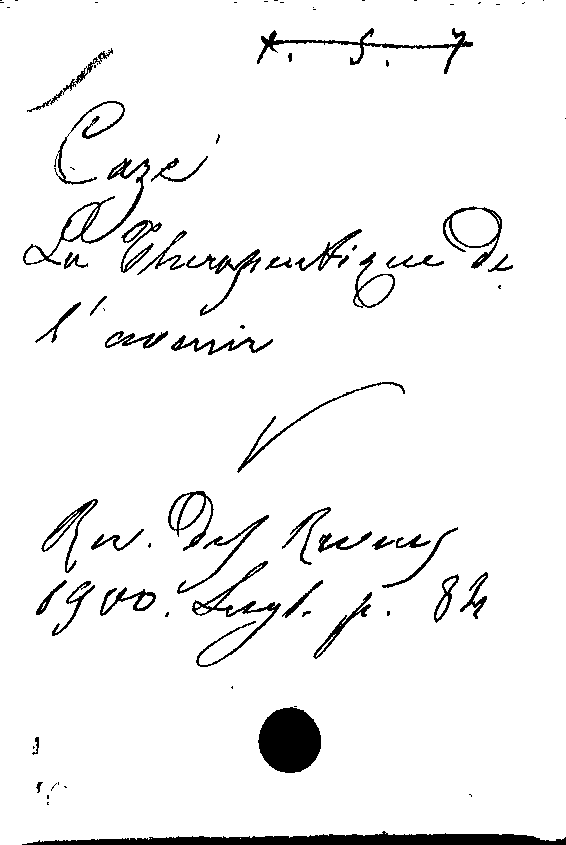 x. 5. 7
Cazé
La Therapeutique de
l'avenir
Rev. des Revues
1900. Sept. p. 82